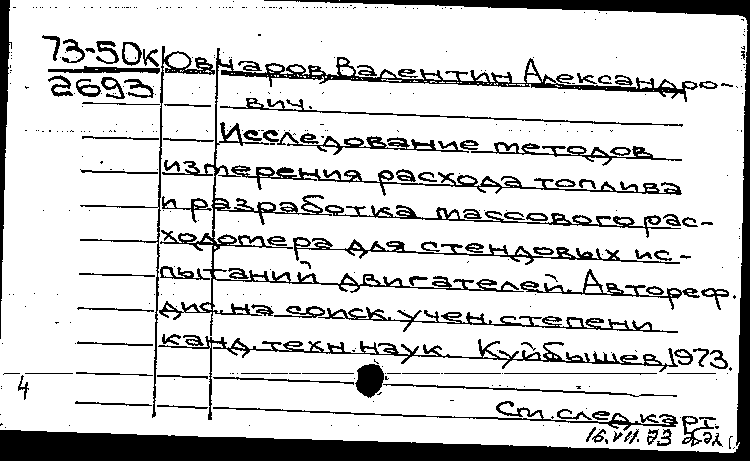 73-50к Овчаров, Валентин Александро-
2693 вич.
Исследование методов
измерения расхода топлива
и разработка массового рас-
ходомера для стендовых ис-
пытаний двигателей. Автореф.
дис. на соиск. учен. степени
канд. техн. наук. Куйбышев, 1973.
4
См. след. карт.
16.VII.73